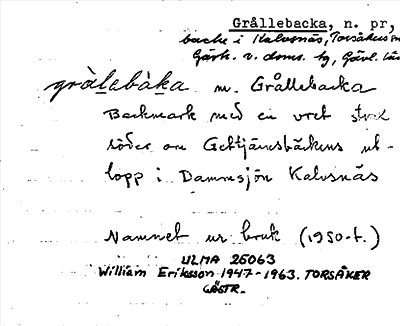 Grållebacka, n. pr,
backe i Kalvsnäs, Torsåkers
Gästr. v. doms. tg, Gävl. län
gràlebàka m. Grållebacka
Backmark med en vret strax
söder om Gettjärnsbäckens ut-
lopp i Dammsjön Kalvsnäs
Namnet ur bruk (1950-t.)
ULMA 25063
William Eriksson 1947-1963. TORSÅKER
GÄSTR.